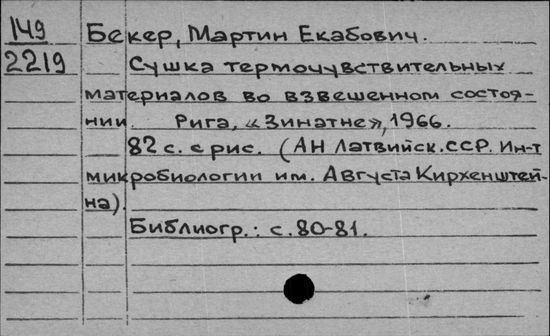 149 Бекер, Мартин Екабович.
2219 Сушка термочувствительных
материалов во взвешенном состоя-
нии. Рига, «Зинатне», 1966.
82 с. с рис. (АН Латвийск. ССР. Ин-т
микробиологии им. Августа Кирхенштей-
на).
Библиогр.: с. 80-81.